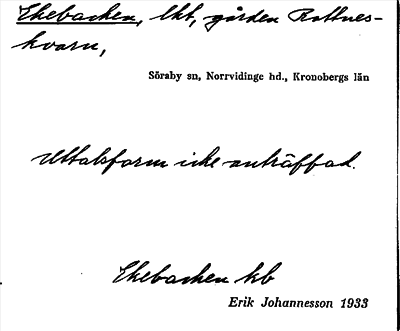 Ekebacken, lht, gården Rottnes-
kvarn,
Söraby sn, Norrvidinge hd., Kronobergs län
Uttalsform icke anträffad.
Ekebacken kb
Erik Johannesson 1933